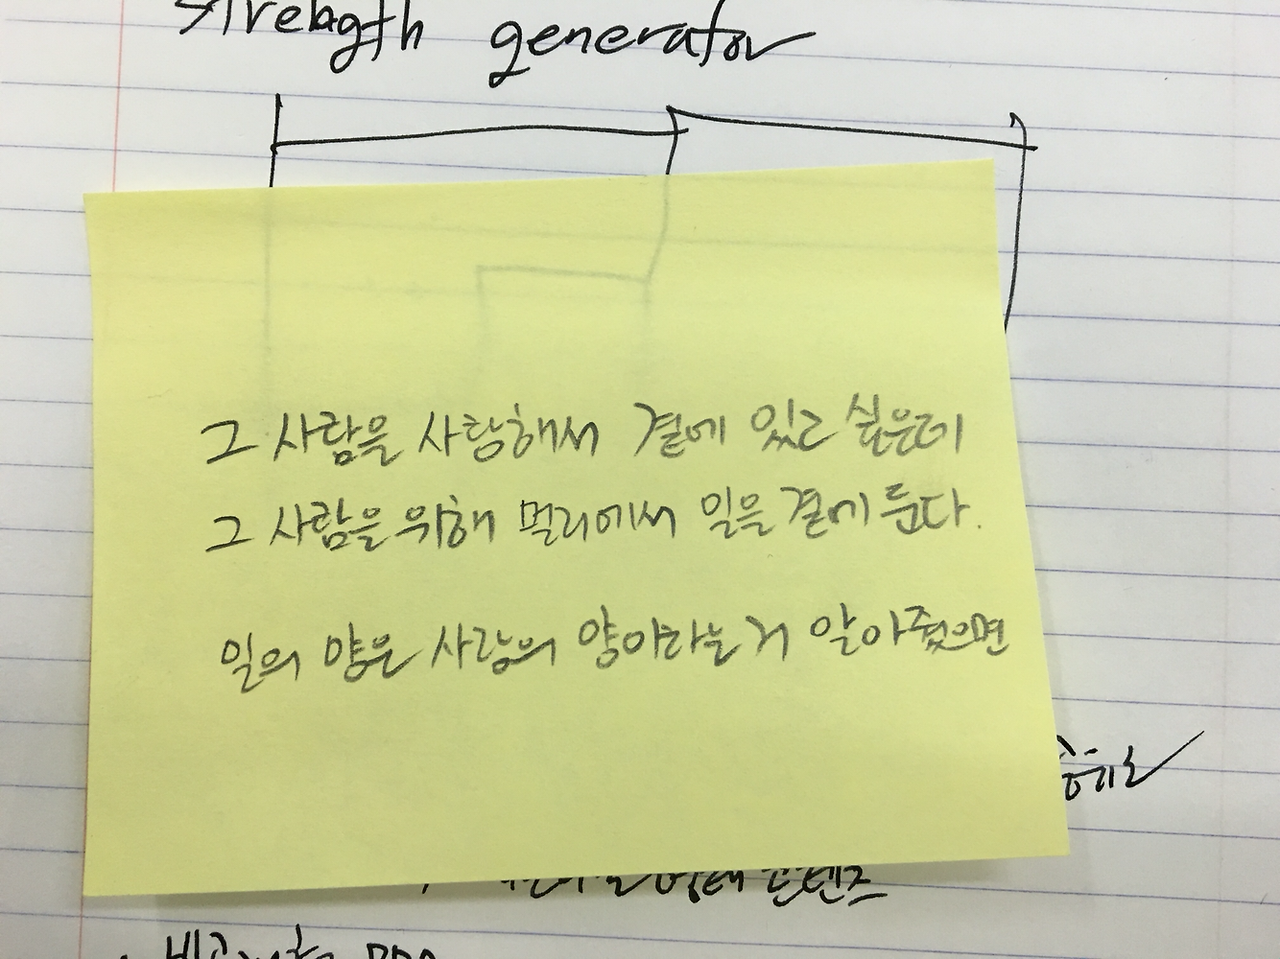 strength generator
그 사람을 사랑해서 곁에 있고 싶은데
그 사람을 위해 멀리에서 일을 곁에 둔다.
일의 양은 사랑의 양이라는 거 알아줬으면
콘텐츠